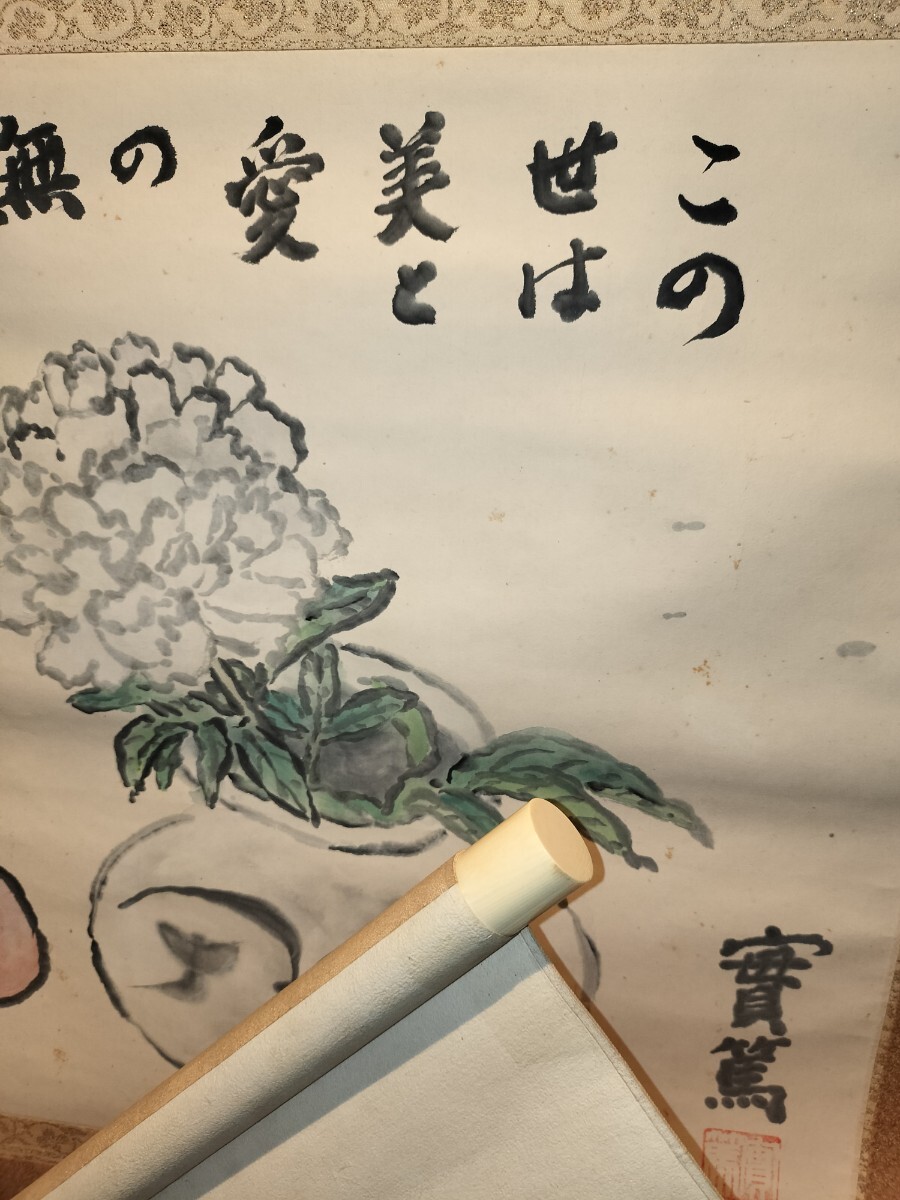 この
世は
美と
愛
の
無
實篤